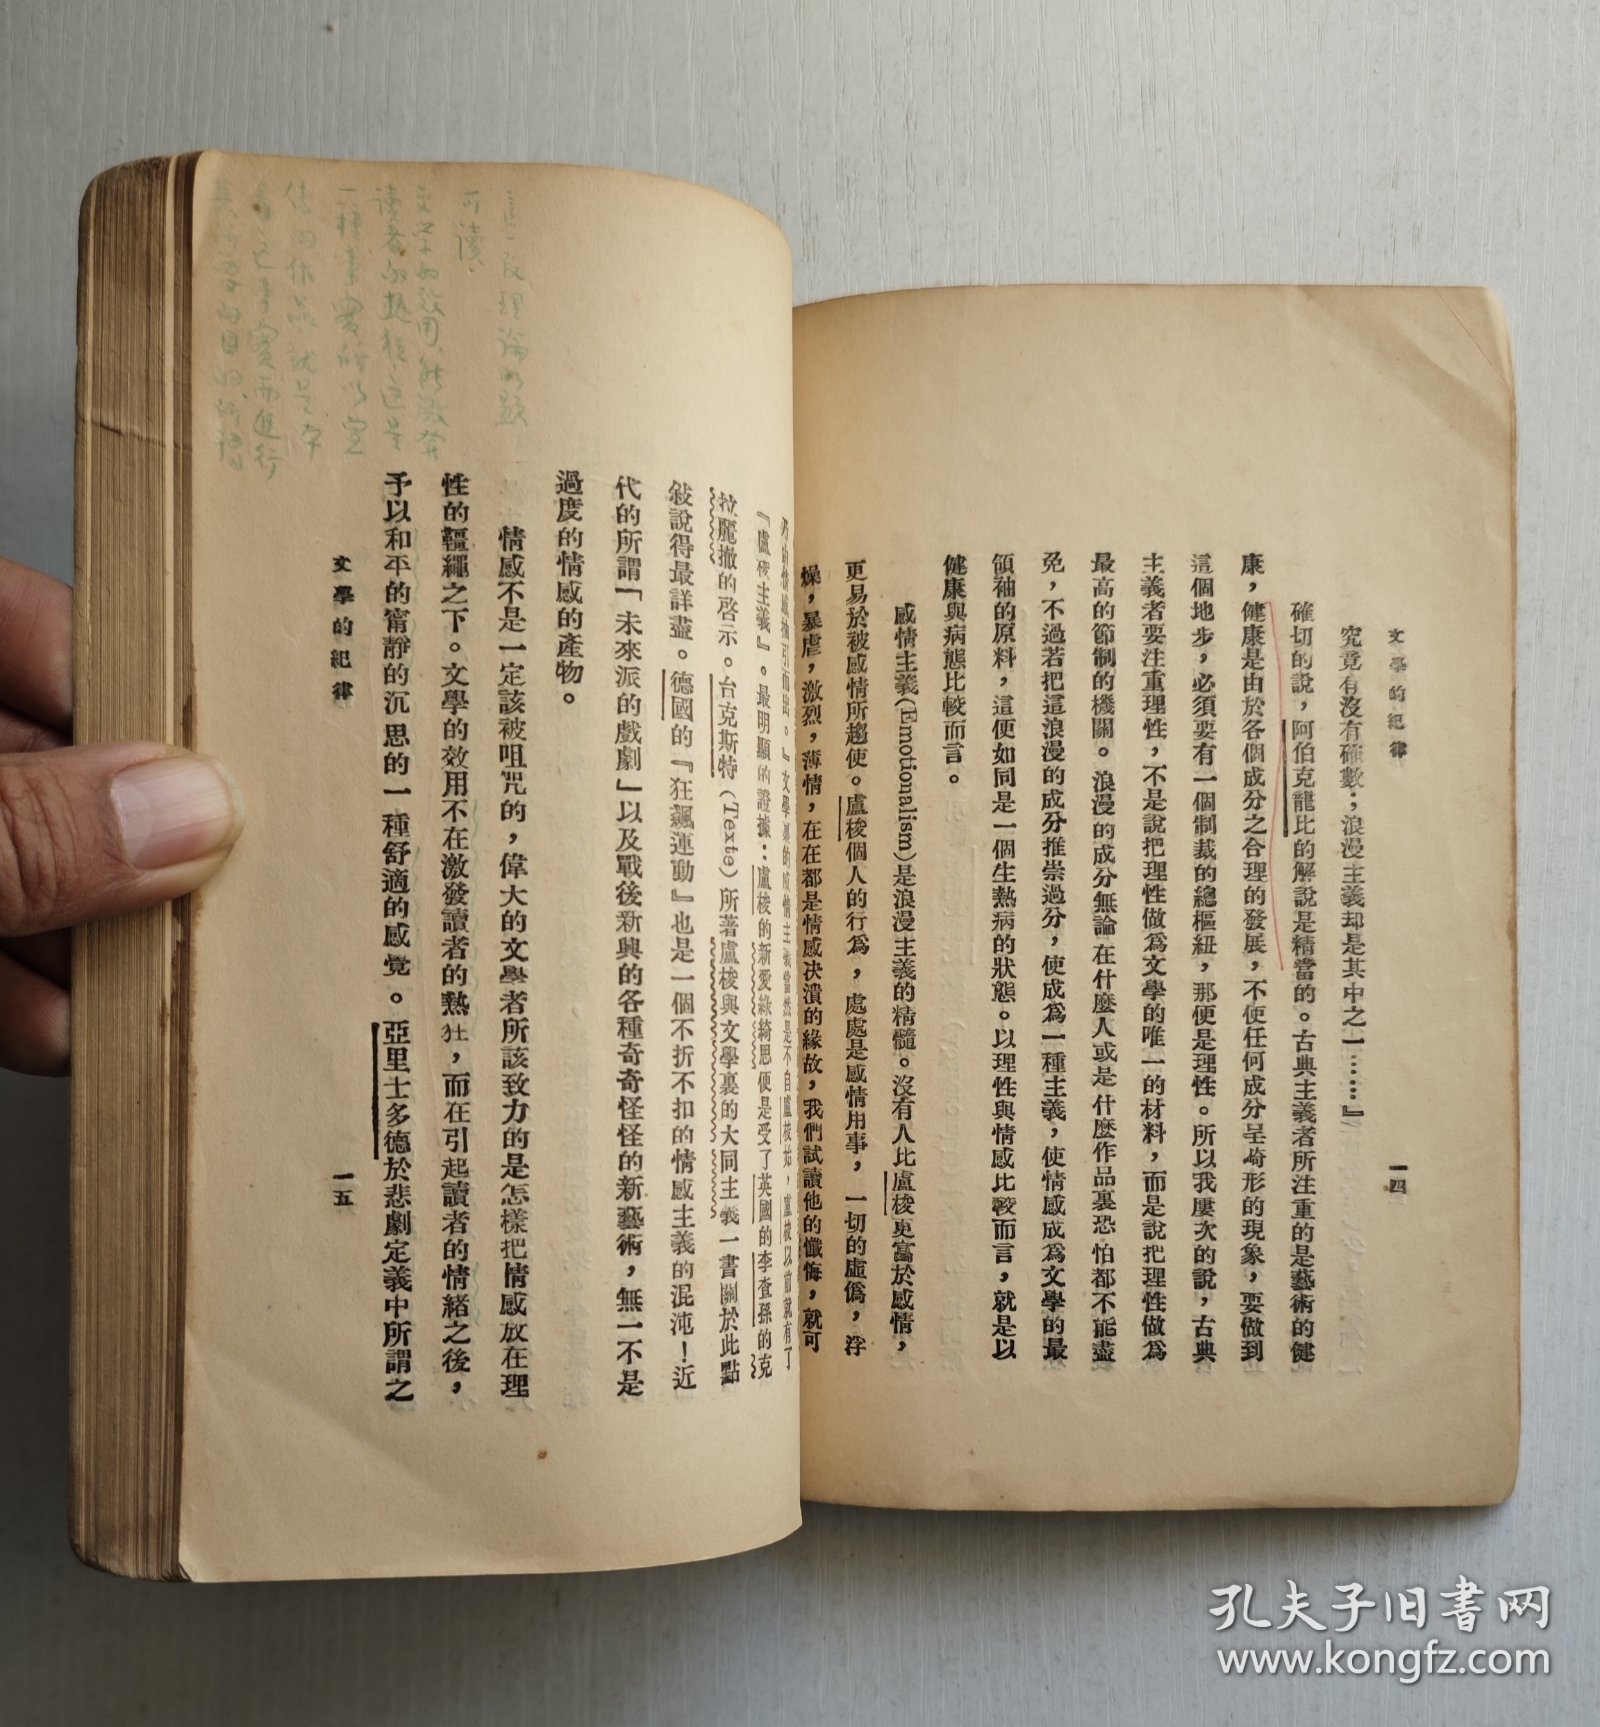 文學的紀律
一四
究竟有沒有確數；浪漫主義却是其中之一……』
確切的說，阿伯克龍比的解說是精當的。古典主義者所注重的是藝術的健
康，健康是由於各個成分之合理的發展，不使任何成分呈畸形的現象，要做到
這個地步，必須要有一個制裁的總樞紐，那便是理性。所以我屢次的說，古典
主義者要注重理性，不是說把理性做爲文學的唯一的材料，而是說把理性做爲
最高的節制的機關。浪漫的成分無論在什麼人或是什麼作品裏恐怕都不能盡
免，不過若把這浪漫的成分推崇過分，使成爲一種主義，使情感成爲文學的最
領袖的原料，這便如同是一個生熱病的狀態。以理性與情感比較而言，就是以
健康與病態比較而言。
感情主義(Emotionalism)是浪漫主義的精髓。沒有人比盧梭更富於感情，
更易於被感情所趨使。盧梭個人的行爲，處處是感情用事，一切的虛僞，浮
燥，暴虐，激烈，薄情，在在都是情感決潰的緣故，我們試讀他的懺悔，就可
引而出。』文學裏的感情主義當然是不自盧梭始，盧梭以前就有了
『盧梭主義』。最明顯的證據：盧梭的新愛綠綺思便是受了英國的李查孫的克
拉麗撒的啓示。台克斯特(Texte)所著盧梭與文學裏的大同主義一書關於此點
敍說得最詳盡。德國的『狂飆運動』也是一個不折不扣的情感主義的混沌！近
代的所謂「未來派的戲劇」以及戰後新興的各種奇奇怪怪的新藝術，無一不是
過度的情感的產物。
情感不是一定該被咀咒的，偉大的文學者所該致力的是怎樣把情感放在理
性的韁繩之下。文學的效用不在激發讀者的熱狂，而在引起讀者的情緒之後，
予以和平的甯靜的沉思的一種舒適的感覺。亞里士多德於悲劇定義中所謂之
文學的紀律
一五
這一段理論的
可讀
文學的效用,能激發
读者的热狂,这是
一种事實,所以宣
传的作品就是本
着这事實而進行
其所要的目的
孔夫子旧書网
www.kongfz.com